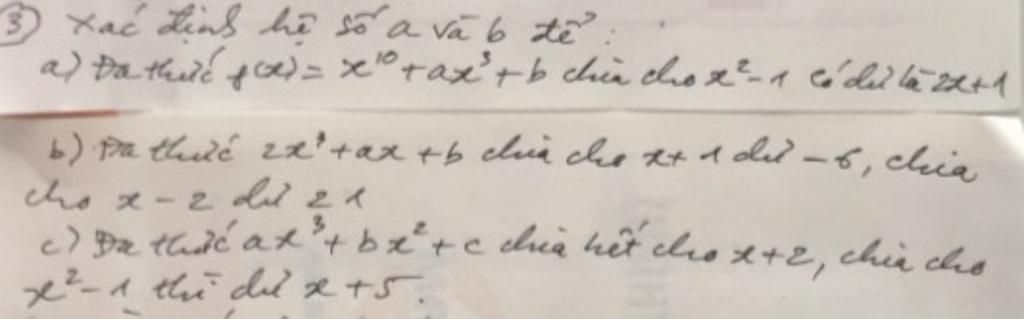 ③ Xác định hệ số a và b để:
a) Đa thức f(x) = x¹⁰ + ax³ + b chia cho x² - 1 có dư là 2x+1
b) Đa thức 2x³ + ax + b chia cho x + 1 dư - 6, chia
cho x - 2 dư 21
c) Đa thức ax³ + bx² + c chia hết cho x+2, chia cho
x² - 1 thì dư x + 5.